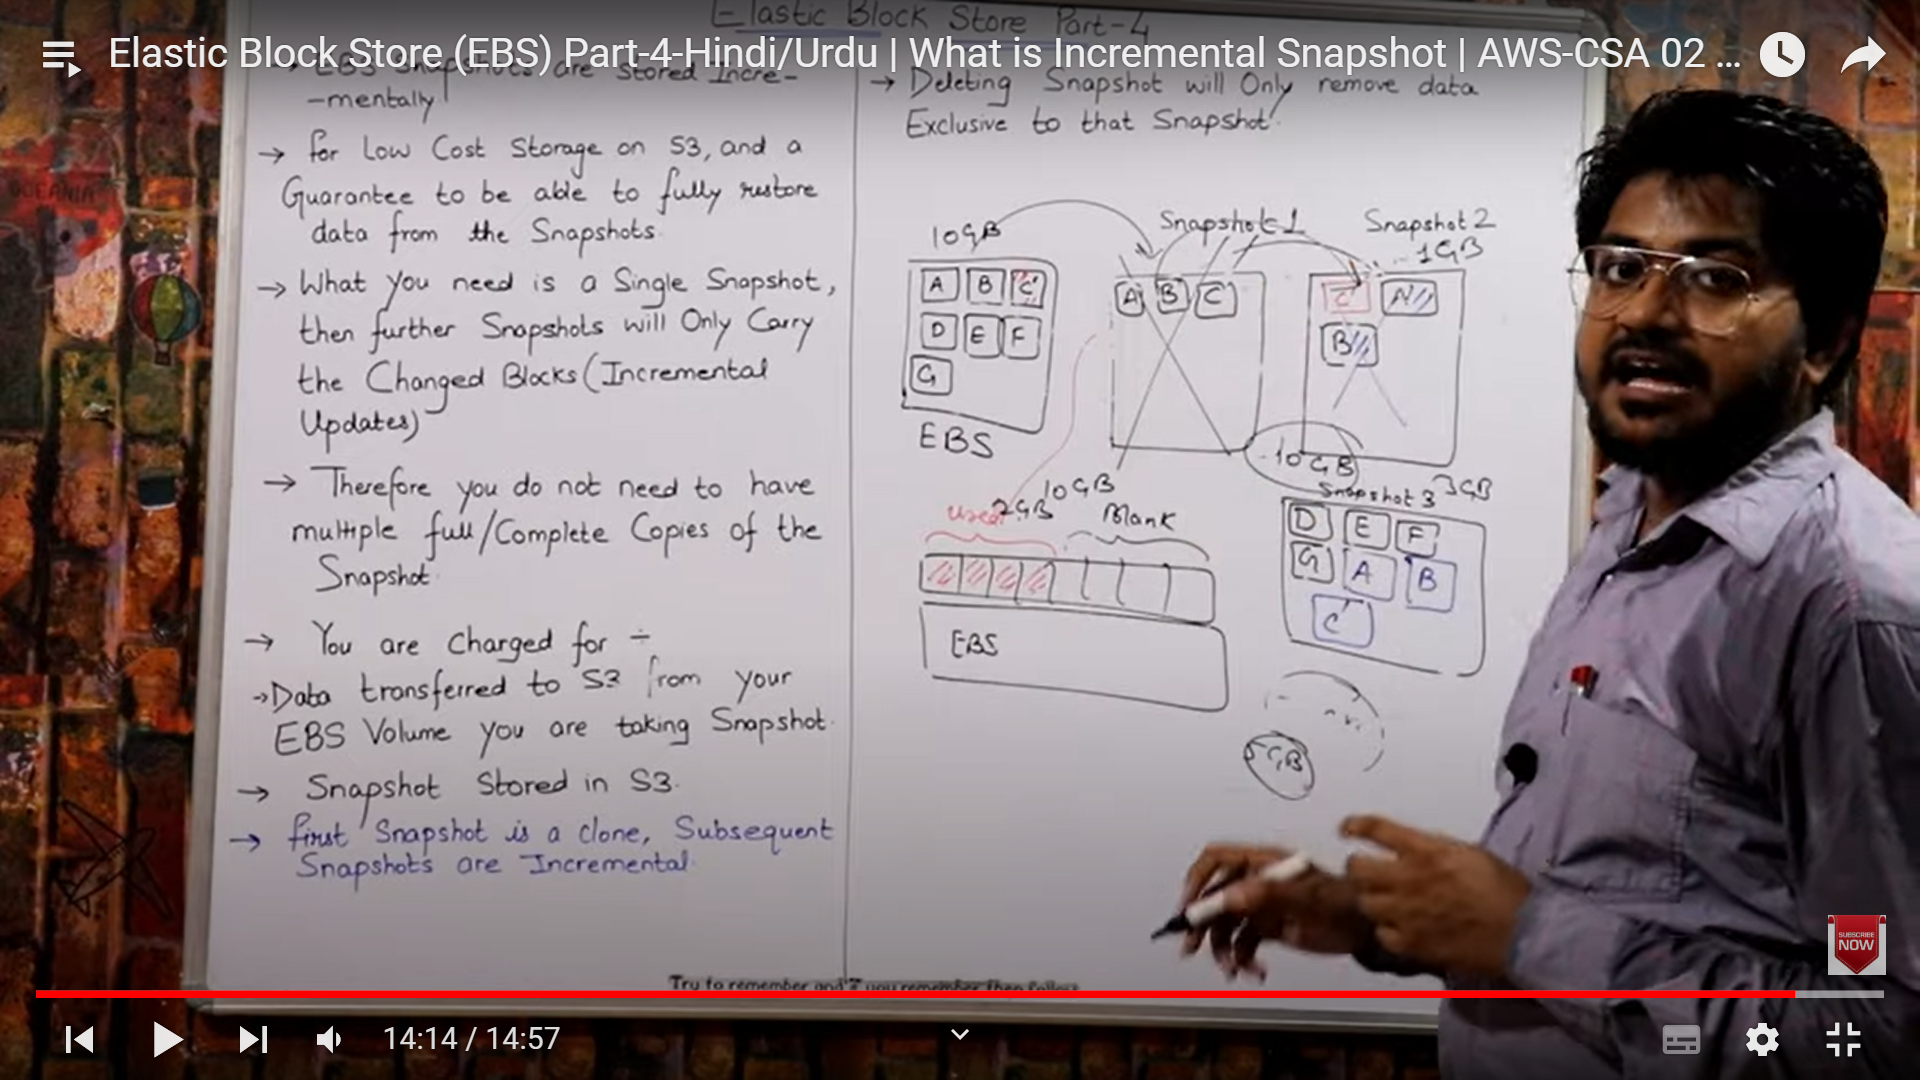 Elastic Block Store Part-4
Elastic Block Store (EBS) Part-4-Hindi/Urdu | What is Incremental Snapshot | AWS-CSA 02 ...
→ EBS Snapshots are Stored Incre-
-mentally
→ for Low Cost Storage on S3, and a
Guarantee to be able to fully restore
data from the Snapshots.
→ What you need is a Single Snapshot,
then further Snapshots will Only Carry
the Changed Blocks (Incremental
Updates)
→ Therefore you do not need to have
multiple full/Complete Copies of the
Snapshot.
→ You are charged for ÷
→ Data transferred to S3 from your
EBS Volume you are taking Snapshot.
→ Snapshot Stored in S3.
→ first Snapshot is a clone, Subsequent
Snapshots are Incremental.
→ Deleting Snapshot will Only remove data
Exclusive to that Snapshot.
10GB
A B C'
D E F
G
EBS
Snapshot 1
A B C
10GB
Snapshot 2
1GB
C' A
B
10GB
Snapshot 3
3GB
D E F
G A B
C'
used
2GB
Blank
EBS
5GB
Try to remember and
SUBSCRIBE
NOW
14:14 / 14:57